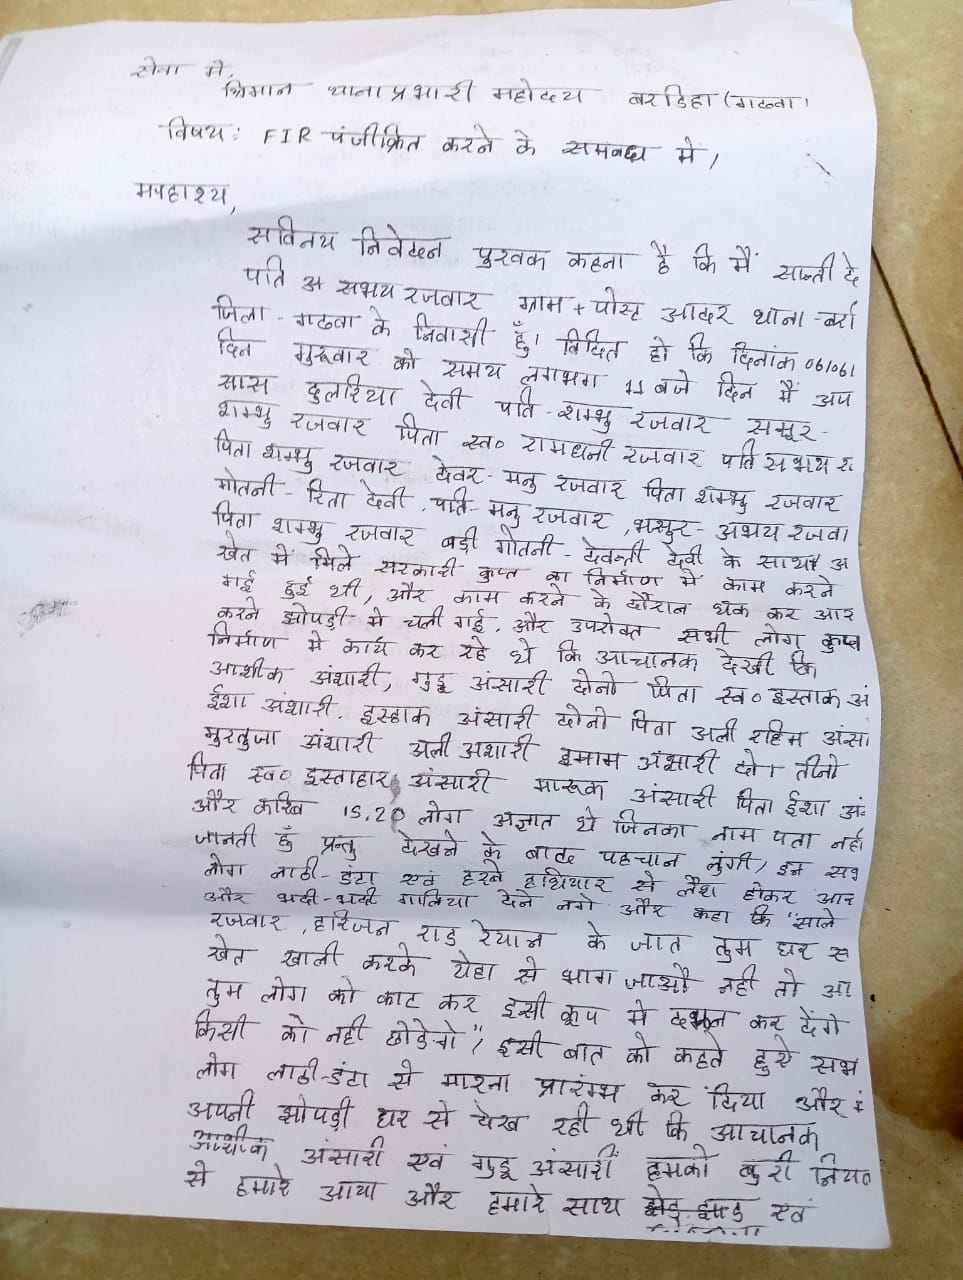 सेवा में,
श्रिमान थाना प्रभारी महोदय बरडिहा (गढवा)
विषय: FIR पंजीक्रित करने के समबन्ध में,
मपहाश्य,
सविनय निवेदन पुरवक कहना है कि मैं सान्ती दे
पति अ सभय रजवार ग्राम + पोस्ट आदर थाना - बर्रा
जिला - गढवा के निवासी हुँ। विदित हो कि दिनांक 06/06/
दिन गुरूवार को समय लगभग 11 बजे दिन मैं अप
सास दुलरिया देवी पति - शम्भु रजवार ससूर -
शम्भु रजवार पिता स्व० रामधनी रजवार पति सभय र
पिता शम्भु रजवार देवर - मनु रजवार पिता शम्भु रजवार
गोतनी - रिता देवी, पति - मनु रजवार, भसुर - अभय रजवा
पिता शम्भु रजवार बडी गोतनी - देवन्ती देवी के साथ अ
खेत में मिले सरकारी कुप्त का निर्माण में काम करने
गई हुई थी, और काम करने के दौरान थक कर आर
करने झोपडी मे चली गई, और उपरोक्त सभी लोग कुप्त
निर्माण मे कार्य कर रहे थे कि आचानक देखी कि
आशीक अंशारी, गुड्डू अंसारी दोनो पिता स्व० इस्ताक अं
ईशा अंशारी, इस्हाक अंसारी दोनो पिता अली रहिम अंसा
मुरतुजा अंशारी अली अशारी इमाम अंशारी तीनो
पिता स्व० इस्ताहार अंसारी मारूक अंसारी पिता ईशा अं
और करिब 15,20 लोग अज्ञात थे जिनका नाम पता नही
जानती हुँ प्रन्तु देखने के बाद पहचान लुंगी, इन सभ
लोग लाठी - डंटा एवं हरवे हथियार से लैश होकर आए
और भदी - भदी गालिया देने लगे और कहा कि "साले
रजवार, हरिजन राड रेयान के जात तुम घर स
खेत खाली करके येहा से भाग जाओ नही तो आ
तुम लोग को काट कर इसी कूप मे दफन कर देंगे
किसी को नही छोडेगे", इसी बात को कहते हुए सभ
लोग लाठी - डंटा से मारना प्रारंम्भ कर दिया और मै
अपनी झोपडी घर से देख रही थी कि आचानक
आशीक अंसारी एवं गुडू अंसारी हमको बुरी नियत
से हमारे आया और हमारे साथ छेड़ छाड एवं